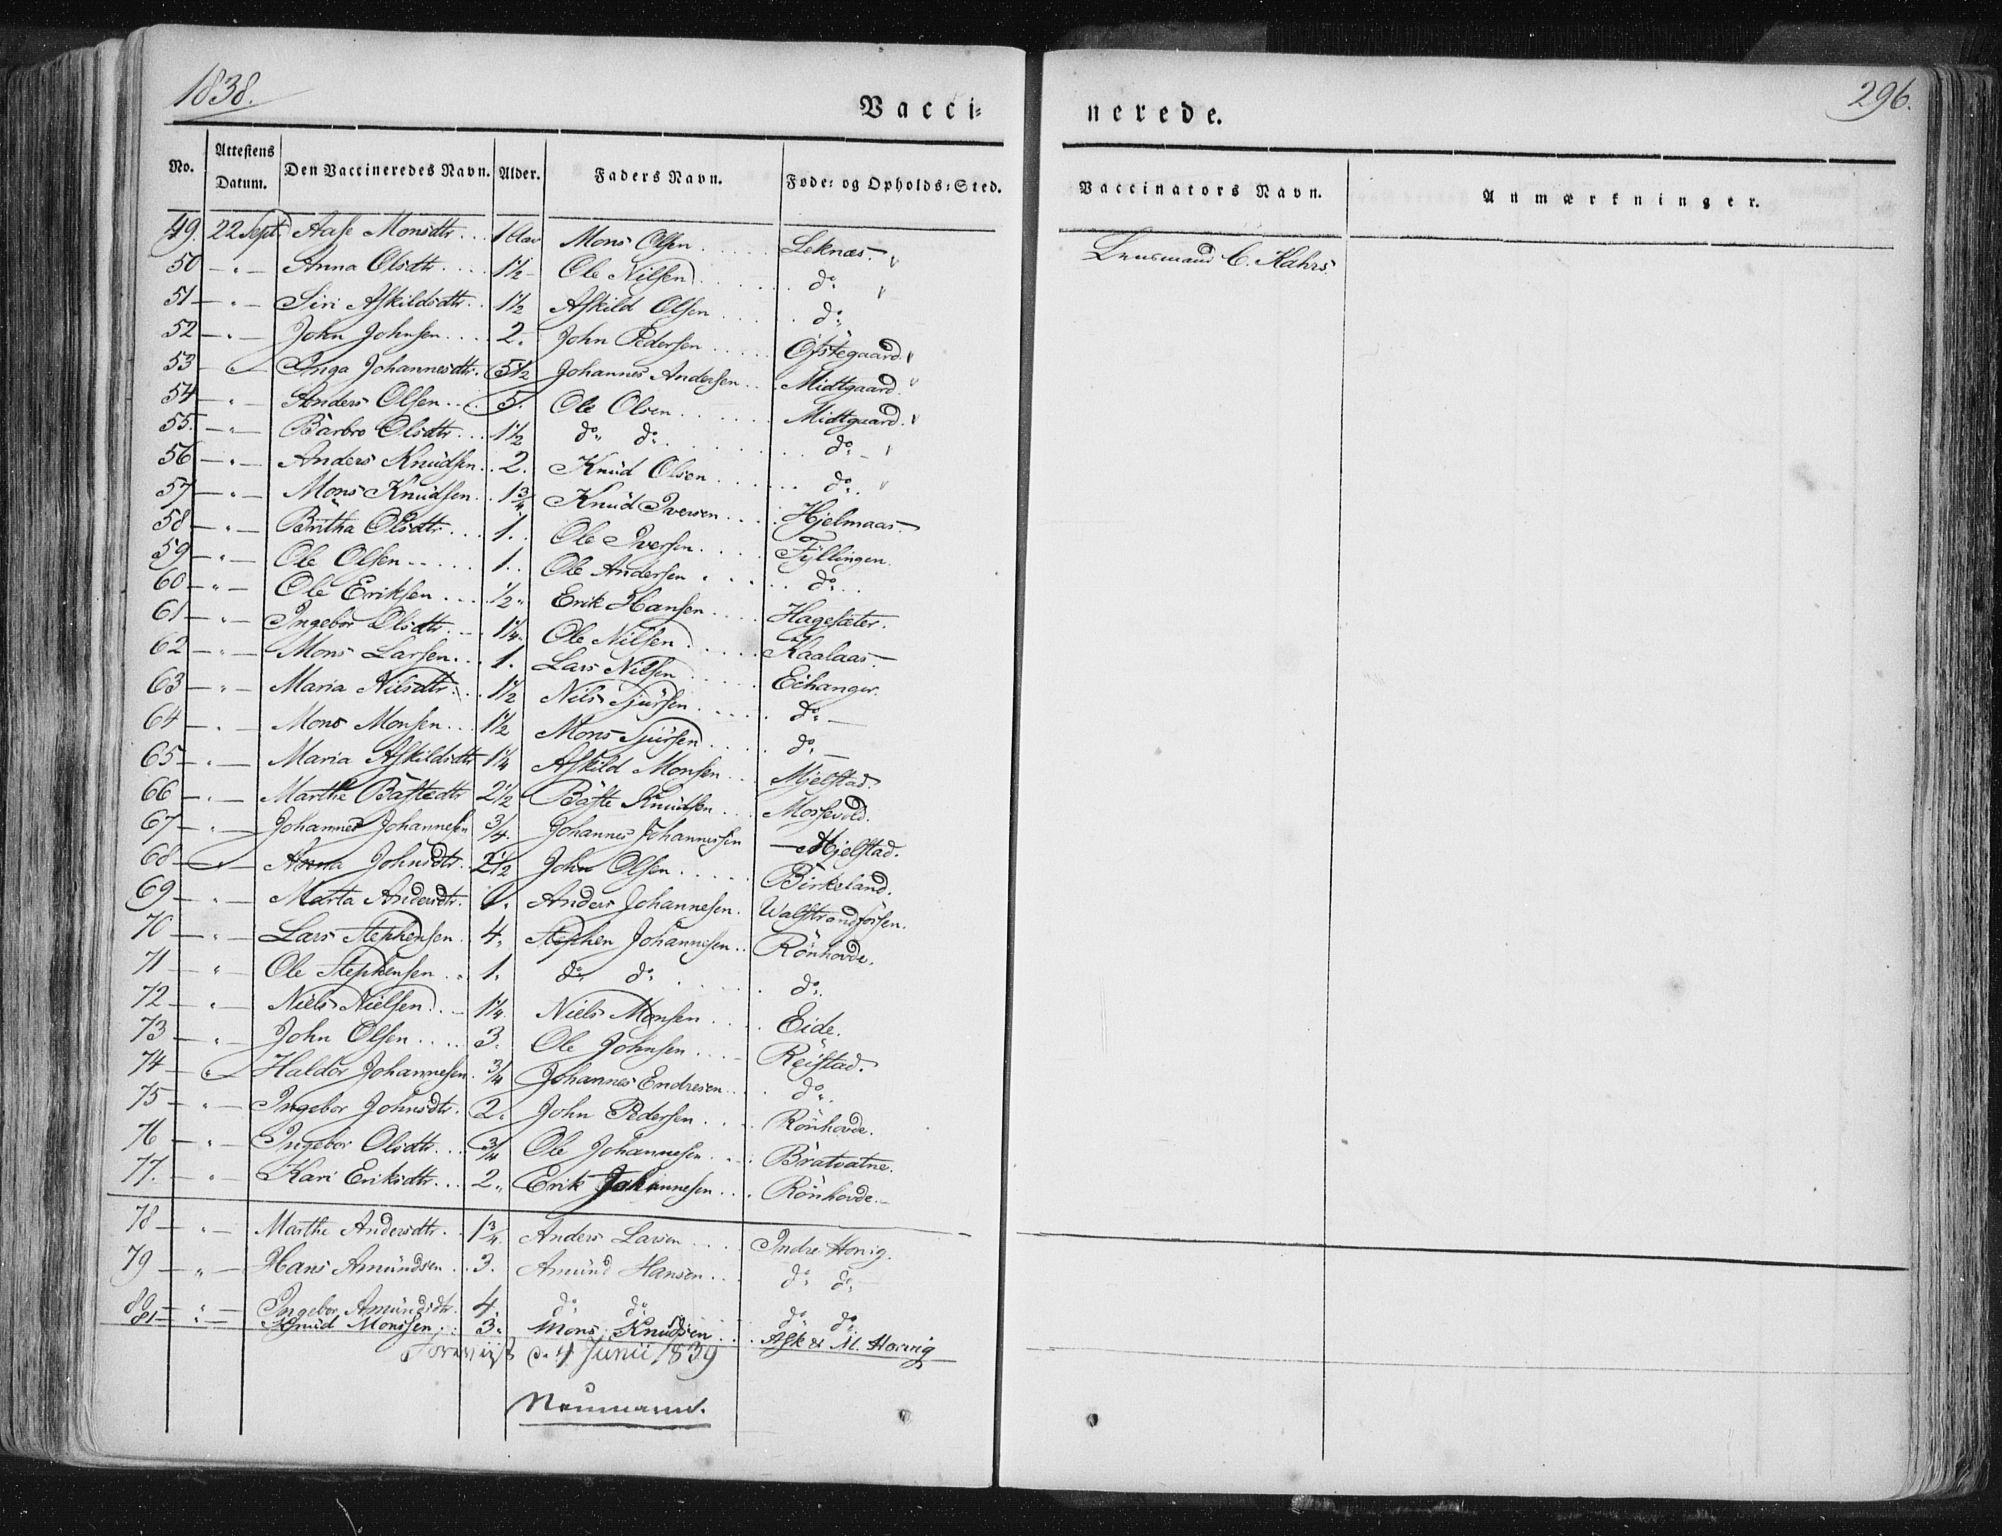 1838.
296.
Vacci-
nerede.
No. Attestens Datum. Den Vaccineredes Navn. Alder. Faders Navn. Føde- og Opholds-Sted. Vaccinators Navn. Anmærkninger.
49. 22 Sept. Aase Monsdtr... 1 Aar Mons Olsen..... Leknæs — Lensmand C. Kahrs.
50 — " — Anna Olsdtr.... 1½ — Ole Nilsen...... do
51 — " — Siri Askildsdtr.. 1½ Askild Olsen.... do
52 — " — John Johnsen.... 2. John Pedersen.... Öfstegaard.
53 — " Inga Johannesdtr. 5½ Johannes Andersen.. Midtgaard.
54 — " — Anders Olsen... 5. Ole Olsen...... Midtgaard.
55. — " — Barbro Olsdtr... 1½ do do...... do —
56 — " — Anders Knudsen.. 2. Knud Olsen...... do.
57 — " — Mons Knudsen. 1¾ Knud Iversen.... Hjelmaas —
58 — " — Britha Olsdtr... 1.. Ole Iversen..... Fyllingen.
59 — " — Ole Olsen..... 1.. Ole Andersen.... do...
60 — " — Ole Eriksen... ½.. Erik Hansen.... Hagesæter.
61 — " — Ingebor Olsdtr.. 1¼. Ole Nilsen..... Kaalaas. —
62 — " — Mons Larsen... 1. Lars Nilsen..... Echanger.
63 — " — Maria Nilsdtr... 1½ Nils Sjursen..... do —
64 — " — Mons Monsen... 1½ Mons Sjursen..... do —
65 — " — Maria Askildsdtr 1¼ Askild Monsen... Mjelstad.
66 — " — Marthe Bastedtr 2½ Baste Knudsen... Morsevold.
67 — " — Johannes Johannesen ¾. Johannes Johannessen — Mjelstad.
68 — " Anna Johnsdtr. 2½ John Olsen..... Birkeland.
69 — " — Marta Andersdtr. 1. Anders Johannesen. Walstrandfossen.
70 — " — Lars Stephensen. 4. Stephen Johannesen.. Rönhovde.
71 — " — Ole Stephensen.. 1. do do...... do.
72 — " — Niels Nielsen... 1¼. Niels Monsen.... Eide.
73 — " — John Olsen.... 3. Ole Johnsen.... Reistad.
74 — " Haldor Johannesen. ¾ Johannes Endresen.. do.
75 — " — Ingebor Johnsdtr. 2. John Pedersen.... Rönhovde.
76 — " — Ingebor Olsdtr... ¾ Ole Johannesen.... Bratvatne.
77. — " — Kari Eriksdtr... 2.. Erik Johannesen... Rönhovde. —
78 — " — Marthe Andersdtr. 1¾. Anders Larsen.... Indre Honig.
79 — " — Hans Amundsen.. 3. Amund Hansen... do do
80 — " — Ingebor Amundsdtr. 4. do do do do.
81 — " — Knud Monssen... 3. Mons Knudsen... Ask & M. Horvig
Foreviist d. 4 Junii 1839
Neumann.